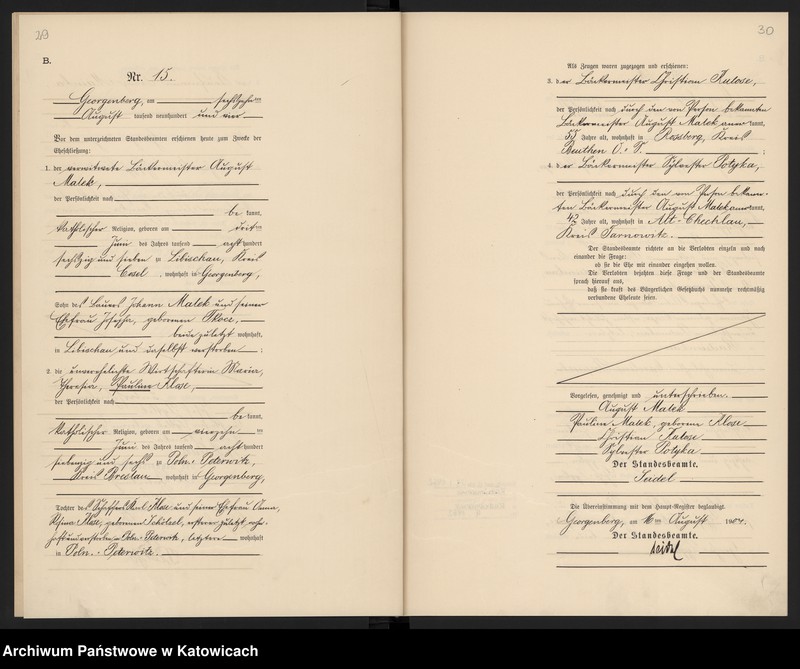 29
B.
Nr. 15.
Georgenberg, am sechszehn ten
August tausend neunhundert und vier
Vor dem unterzeichneten Standesbeamten erschienen heute zum Zwecke der
Eheschließung:
1. der verwitwete Bäckermeister August
Malek,
der Persönlichkeit nach
be kannt,
katholischer Religion, geboren am drit ten
Juni des Jahres tausend acht hundert
sechszig und sieben zu Lebischau, Kreis
Cosel, wohnhaft in Georgenberg,
Sohn des Bauers Johann Malek und seiner
Ehefrau Josefa, geborenen
beide zuletzt wohnhaft
in Libischau und daselbst verstorben ;
2. die unverehelichte Wirtschafterin Maria,
Theresia, Pauline Klose,
der Persönlichkeit nach
be kannt,
katholischer Religion, geboren am vierzehn ten
Juni des Jahres tausend acht hundert
siebenzig und sechs zu Poln.-Peterwitz,
Kreis Breslau, wohnhaft in Georgenberg,
Tochter des Schäffers Karl Klose und seiner Ehefrau Anna,
Rosina Klose, geborenen ersterer zuletzt wohn-
haft und verstorben in Poln.-Peterwitz, letztere wohnhaft
in Poln.-Peterwitz.
30
Als Zeugen waren zugezogen und erschienen:
3. der Bäckermeister Christian Kulose,
der Persönlichkeit nach durch den von Person bekannten
Bäckermeister August Malek aner kannt,
Jahre alt, wohnhaft in Rossberg, Kreis
Beuthen O.-S. ;
4. der Bäckermeister Sylvester Potyka,
der Persönlichkeit nach durch den von Person bekann-
ten Bäckermeister August Malek aner kannt,
42 Jahre alt, wohnhaft in Alt-Chechlau,
Kreis Tarnowitz.
Der Standesbeamte richtete an die Verlobten einzeln und nach
einander die Frage:
ob sie die Ehe mit einander eingehen wollen.
Die Verlobten bejahten diese Frage und der Standesbeamte
sprach hierauf aus,
daß sie kraft des Bürgerlichen Gesetzbuchs nunmehr rechtmäßig
verbundene Eheleute seien.
Vorgelesen, genehmigt und unterschrieben.
August Malek
Pauline Malek, geborene Klose
Christian Kulose
Sylvester Potyka
Der Standesbeamte.
Seidel
Die Übereinstimmung mit dem Haupt-Register beglaubigt.
Georgenberg, am 16 ten August 1904.
Der Standesbeamte.
Seidel
Archiwum Państwowe w Katowicach